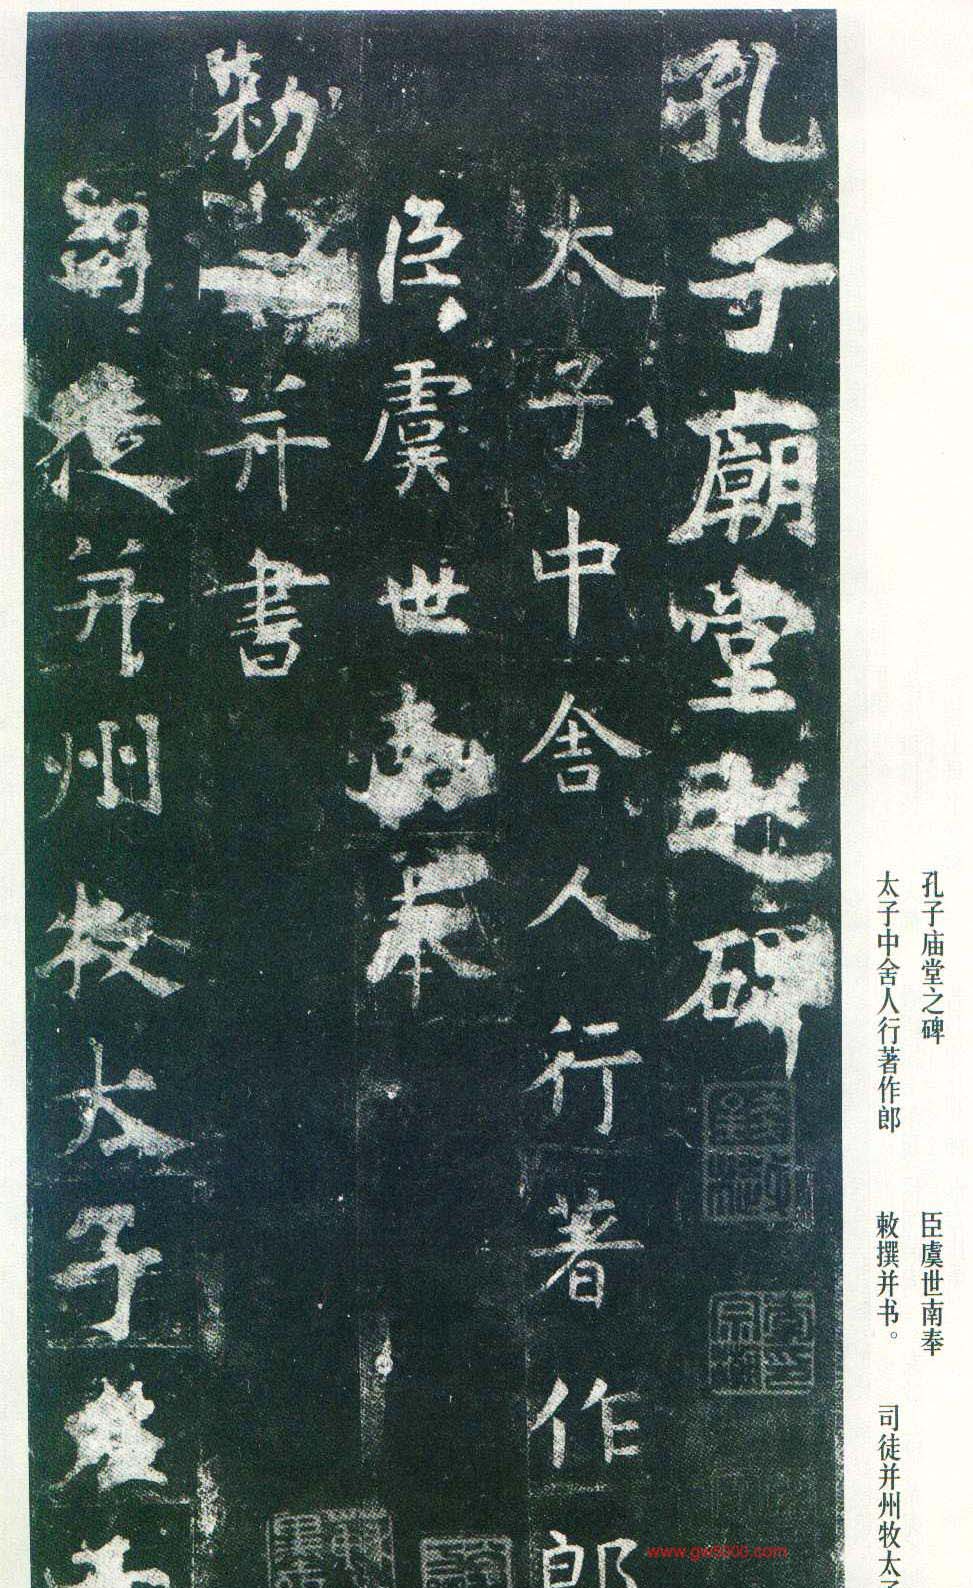 孔子廟堂之碑
太子中舍人行著作郎
臣虞世南奉
勅撰并書
司徒并州牧太子左
孔子庙堂之碑
太子中舍人行著作郎
臣虞世南奉
敕撰并书。
司徒并州牧太子
www.gw8800.com